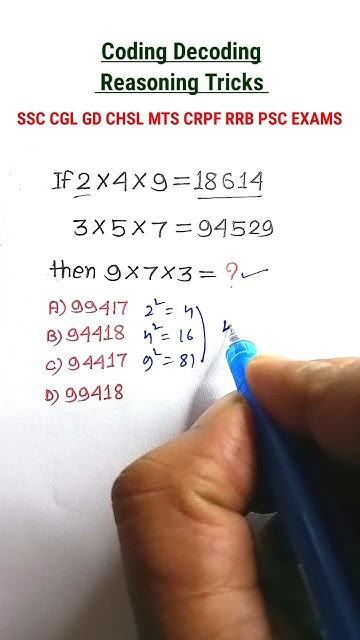 Coding Decoding
Reasoning Tricks
SSC CGL GD CHSL MTS CRPF RRB PSC EXAMS
If 2×4×9=18614
3×5×7=94529
then 9×7×3=?✓
A) 99417 2²=4
B) 94418 4²=16
C) 94417 9²=81
D) 99418